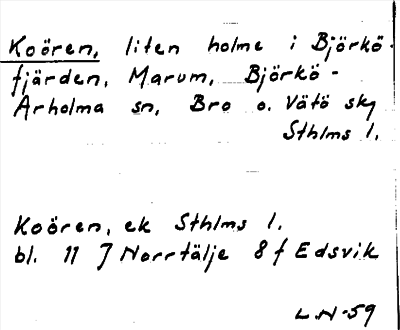 Koören, liten holme i Björkö-
fjärden, Marum, Björkö-
Arholma sn, Bro o. Vätö skg
Sthlms l.
Koören, ek Sthlms l.
bl. 11 J Norrtälje 8 f Edsvik
L.N-59